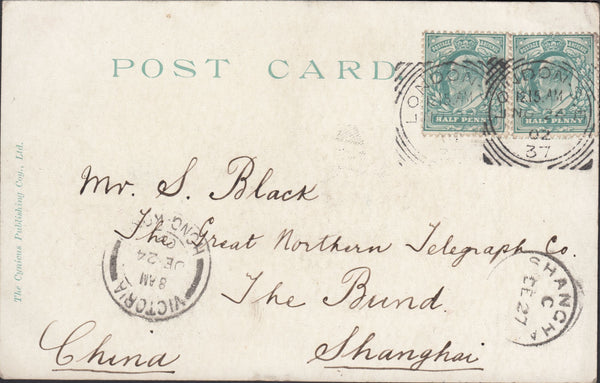 POST CARD
HALF PENNY
HALF PENNY
LONDON
LONDON W
12.15 AM
02
37
Mr. S. Black
The Great Northern Telegraph Co.
The Bund.
Shanghai
China
VICTORIA
8 AM
24
HONG KONG
SHANGHA
C
27
The Cynicus Publishing Coy., Ltd.